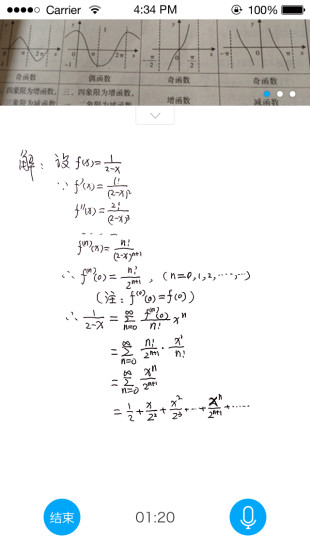 Carrier 4:34 PM 100%
-π 0 π 2π x 1 -π/2 0 π/2 x -π 0 π x
奇函数 偶函数 奇函数 奇函数
四象限为增函数, 三、四象限为增函数, 增函数 减函数
三象限为减函数
解: 设 f(x)=1/(2-x)
∵ f'(x)=1!/(2-x)²
f''(x)=2!/(2-x)³
- - - -
f⁽ⁿ⁾(x)=n!/(2-x)ⁿ⁺¹
∴ f⁽ⁿ⁾(0)=n!/2ⁿ⁺¹, (n=0,1,2,……)
(注: f⁽⁰⁾(0)=f(0))
∴ 1/(2-x) = ∑_{n=0}^{∞} f⁽ⁿ⁾(0)/n! xⁿ
= ∑_{n=0}^{∞} n!/2ⁿ⁺¹ · xⁿ/n!
= ∑_{n=0}^{∞} xⁿ/2ⁿ⁺¹
= 1/2 + x/2² + x²/2³ + … + xⁿ/2ⁿ⁺¹ + ……
结束 01:20